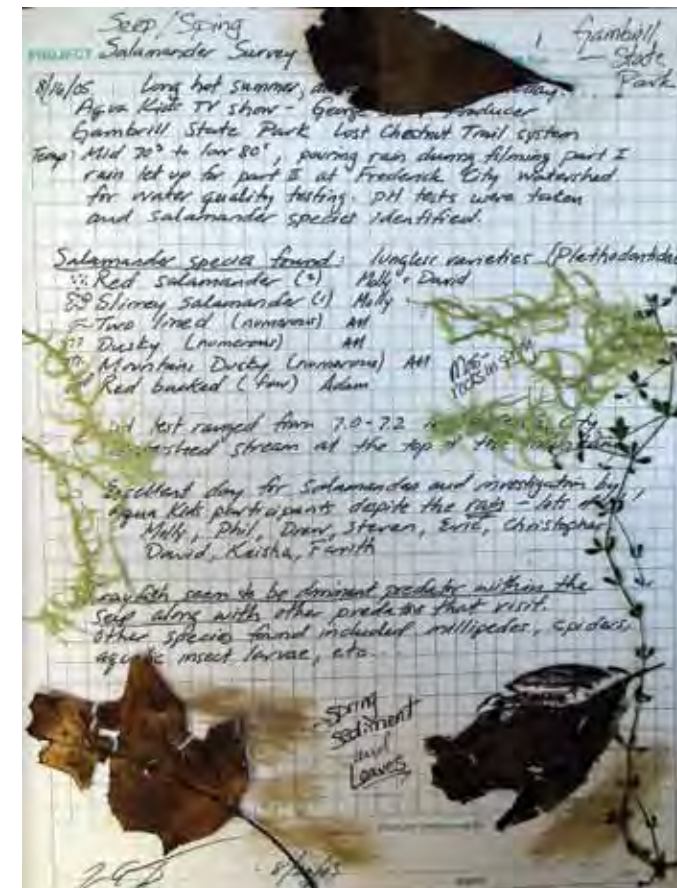 Seep/Spring
PROJECT Salamander Survey
1 Gambrill
State
Park
8/16/05 Long hot summer,
Aqua Kids TV show - George Producer
Gambrill State Park Lost Chestnut Trail system
Temp: Mid 70's to low 80's, pouring rain during filming part I
rain let up for part II at Frederick City Watershed
for water quality testing. pH tests were taken
and salamander species identified.
Salamander species found: lungless varieties (Plethodontidae
Red salamander (2) Molly + David
Slimey Salamander (1) Molly
Two lined (numerous) All
Dusky (numerous) All
Mountain Dusky (numerous) All
Red backed (few) Adam
Moss
rocks in
test ranged from 7.0-7.2 City
stream at the top of the
Excellent day for Salamander and investigation by
Aqua Kids participants despite the rain - lots
Molly, Phil, Drew, Steven, Eric, Christopher
David, Keisha,
crayfish seem to be dominant predator within the
seep along with other predators that visit.
Other species found included millipedes, spiders,
aquatic insect larvae, etc.
Spring
sediment
and
Leaves